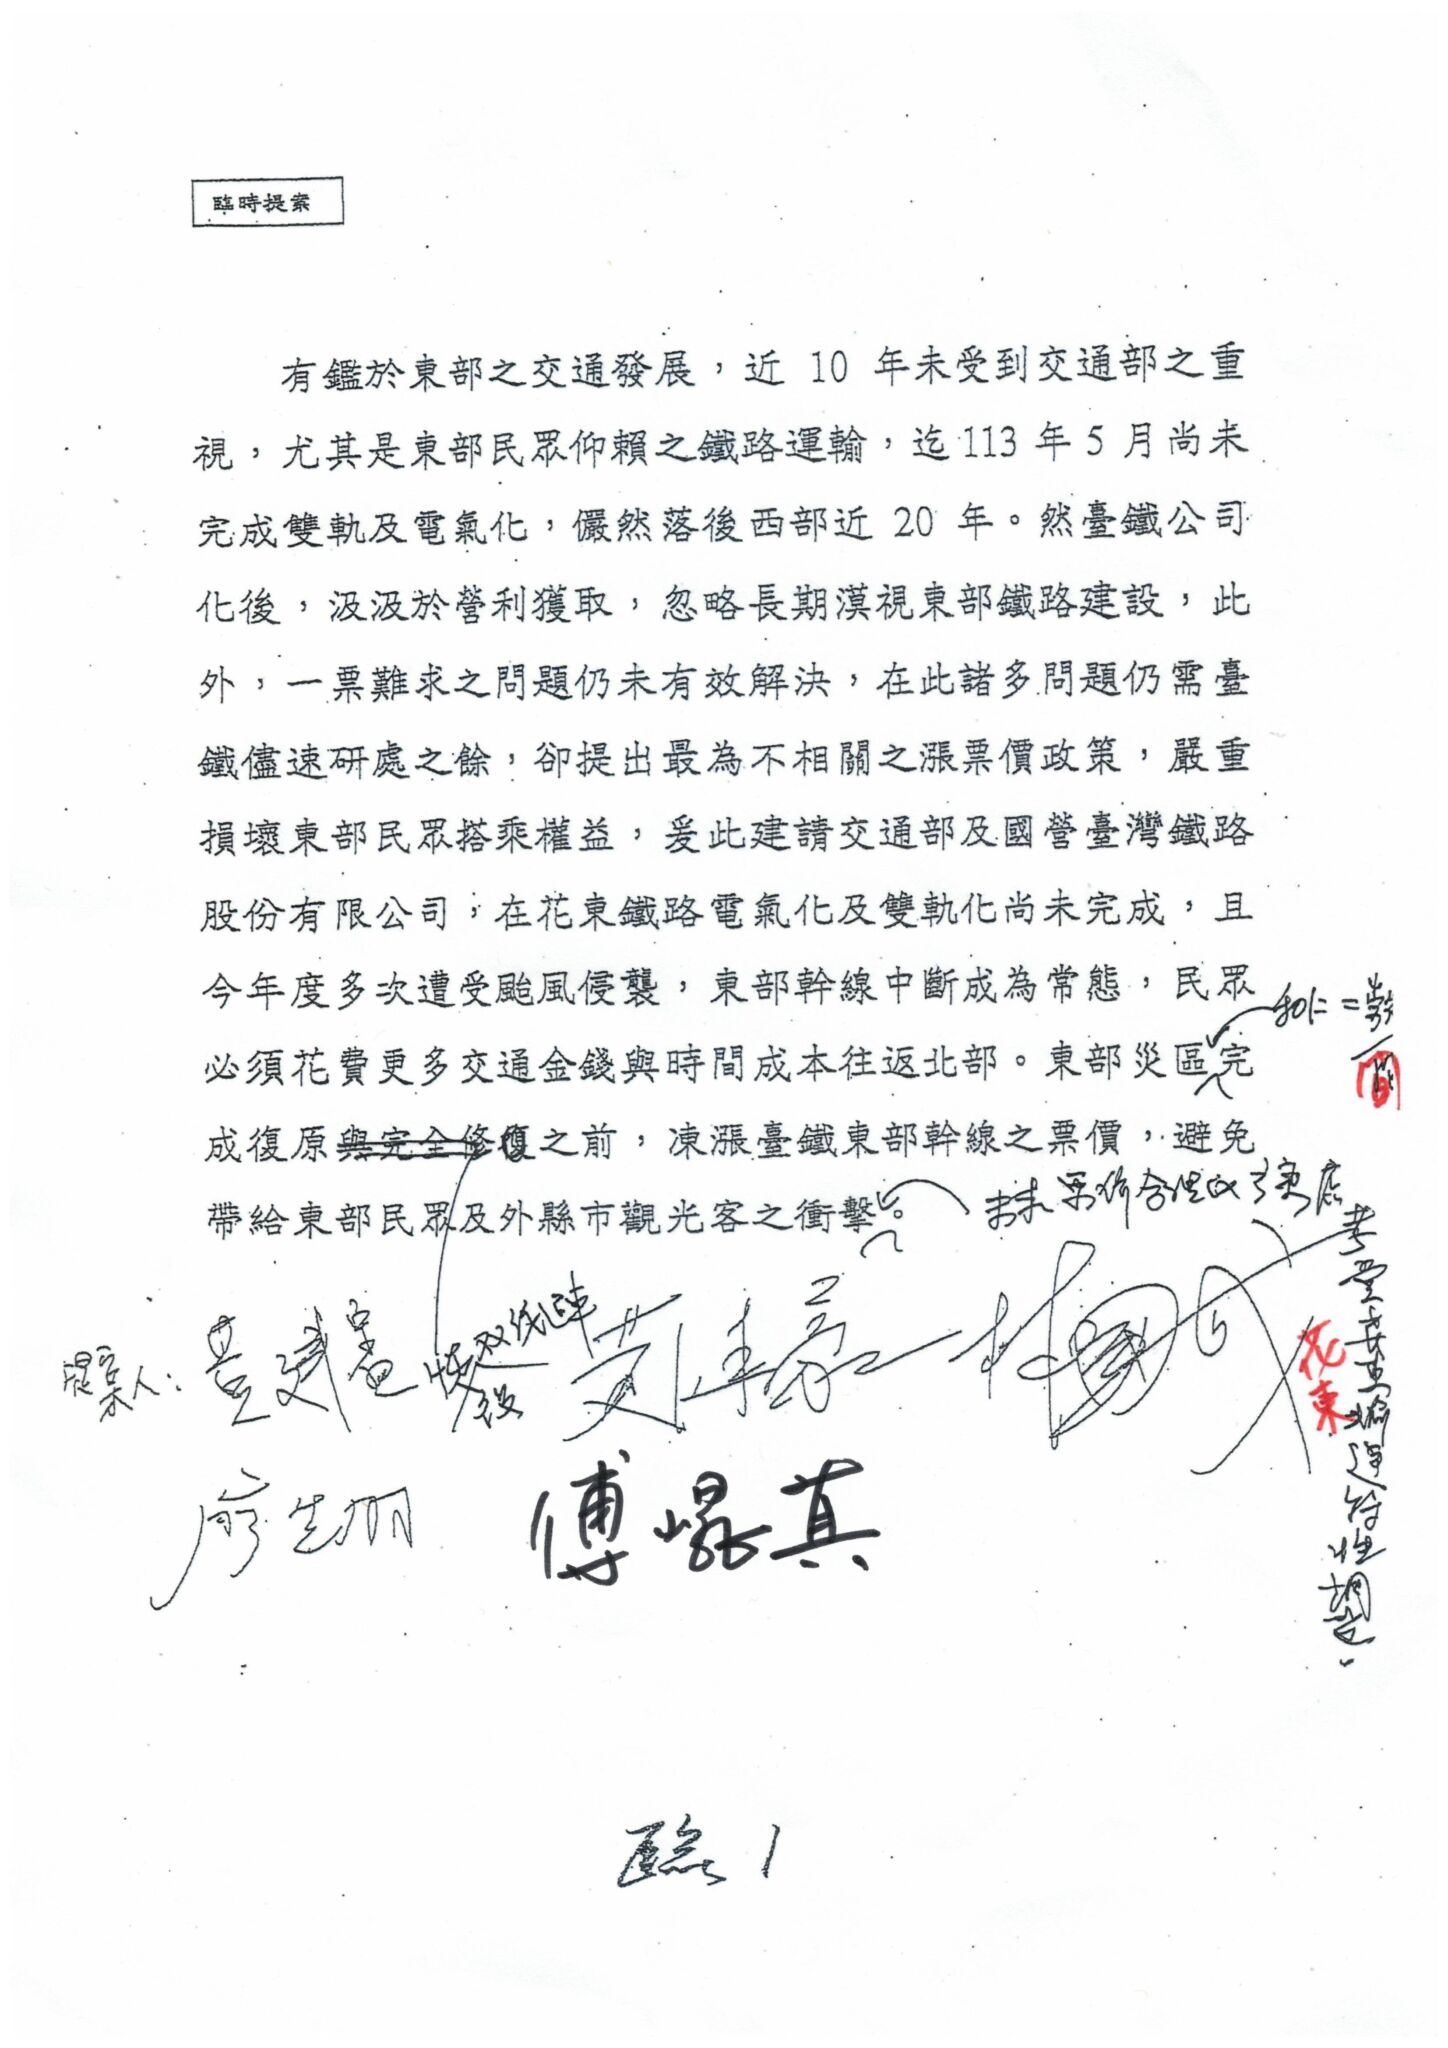 臨時提案
有鑑於東部之交通發展，近 10 年未受到交通部之重
視，尤其是東部民眾仰賴之鐵路運輸，迄113 年 5 月尚未
完成雙軌及電氣化，儼然落後西部近 20 年。然臺鐵公司
化後，汲汲於營利獲取，忽略長期漠視東部鐵路建設，此
外，一票難求之問題仍未有效解決，在此諸多問題仍需臺
鐵儘速研處之餘，卻提出最為不相關之漲票價政策，嚴重
損壞東部民眾搭乘權益，爰此建請交通部及國營臺灣鐵路
股份有限公司，在花東鐵路電氣化及雙軌化尚未完成，且
今年度多次遭受颱風侵襲，東部幹線中斷成為常態，民眾
和仁=崇
必須花費更多交通金錢與時間成本往返北部。東部災區完
成復原與完全修復之前，凍漲臺鐵東部幹線之票價，避免
帶給東部民眾及外縣市觀光客之衝擊。
未來票價合理
花東
提案人：
廖先翔
傅崐萁
臨 1